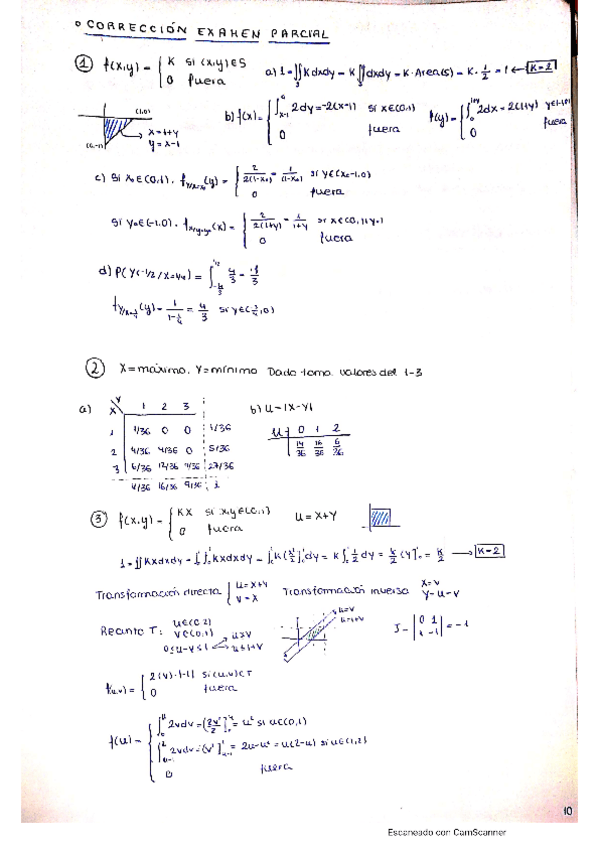 ° CORRECCIÓN EXAMEN PARCIAL
① f(x,y) = { K si (x,y)∈S
0 fuera
a) 1 = ∬ K dxdy = K ∬ dxdy = K · Area(S) = K · 1/2 = 1 ← K=2
(1,0)
(0,-1)
x=1+y
y=x-1
b) f(x) = { ∫ 2dy = -2(x-1) si x∈(0,1)
0 fuera
f(y) = { ∫ 2dx = 2(1+y)
0 fuera
c) Si x₀∈(0,1).
= { 2/2(1-x₀) = 1/(1-x₀) si y∈(x₀-1,0)
0 fuera
Si y₀∈(-1,0).
= { 2/2(1+y) = 1/1+y
0 fuera
d) P(Y<-1/2 /
4/3
1/1-1/4 = 4/3 si
② X=máximo. Y=mínimo Dado toma valores del 1-3
a)
Y
X 1 2 3
1 1/36 0 0
2 4/36 4/36 0 5/36
3 6/36 12/36 9/36 27/36
16/36 9/36 1
b) U=|X-Y|
U 0 1 2
14/36 16/36 6/36
③ f(x,y) = { KX si x,y∈(0,1)
0 fuera
U = X+Y
1 = ∬ Kxdxdy = ∫∫ Kxdxdy = ∫ K(x²/2) dy = K ∫ 1/2 dy = K/2 (y) = K/2 → K=2
Transformación directa { u=x+y
v=x
Transformación inversa x=v
y=u-v
Recinto T: u∈(0,2)
v∈(0,1)
0≤u-v≤1
u≥v
u≤1+v
u=v
J = | 0 1
1 -1 | = -1
f(u,v) = { 2(v)·|-1| si (u,v)∈T
0 fuera
f(u) = { ∫ 2vdv = (2v²/2) = u² si u∈(0,1)
∫ 2vdv = (v²) = 2u-u² = u(2-u) si u∈(1,2)
0 fuera
10
Escaneado con CamScanner